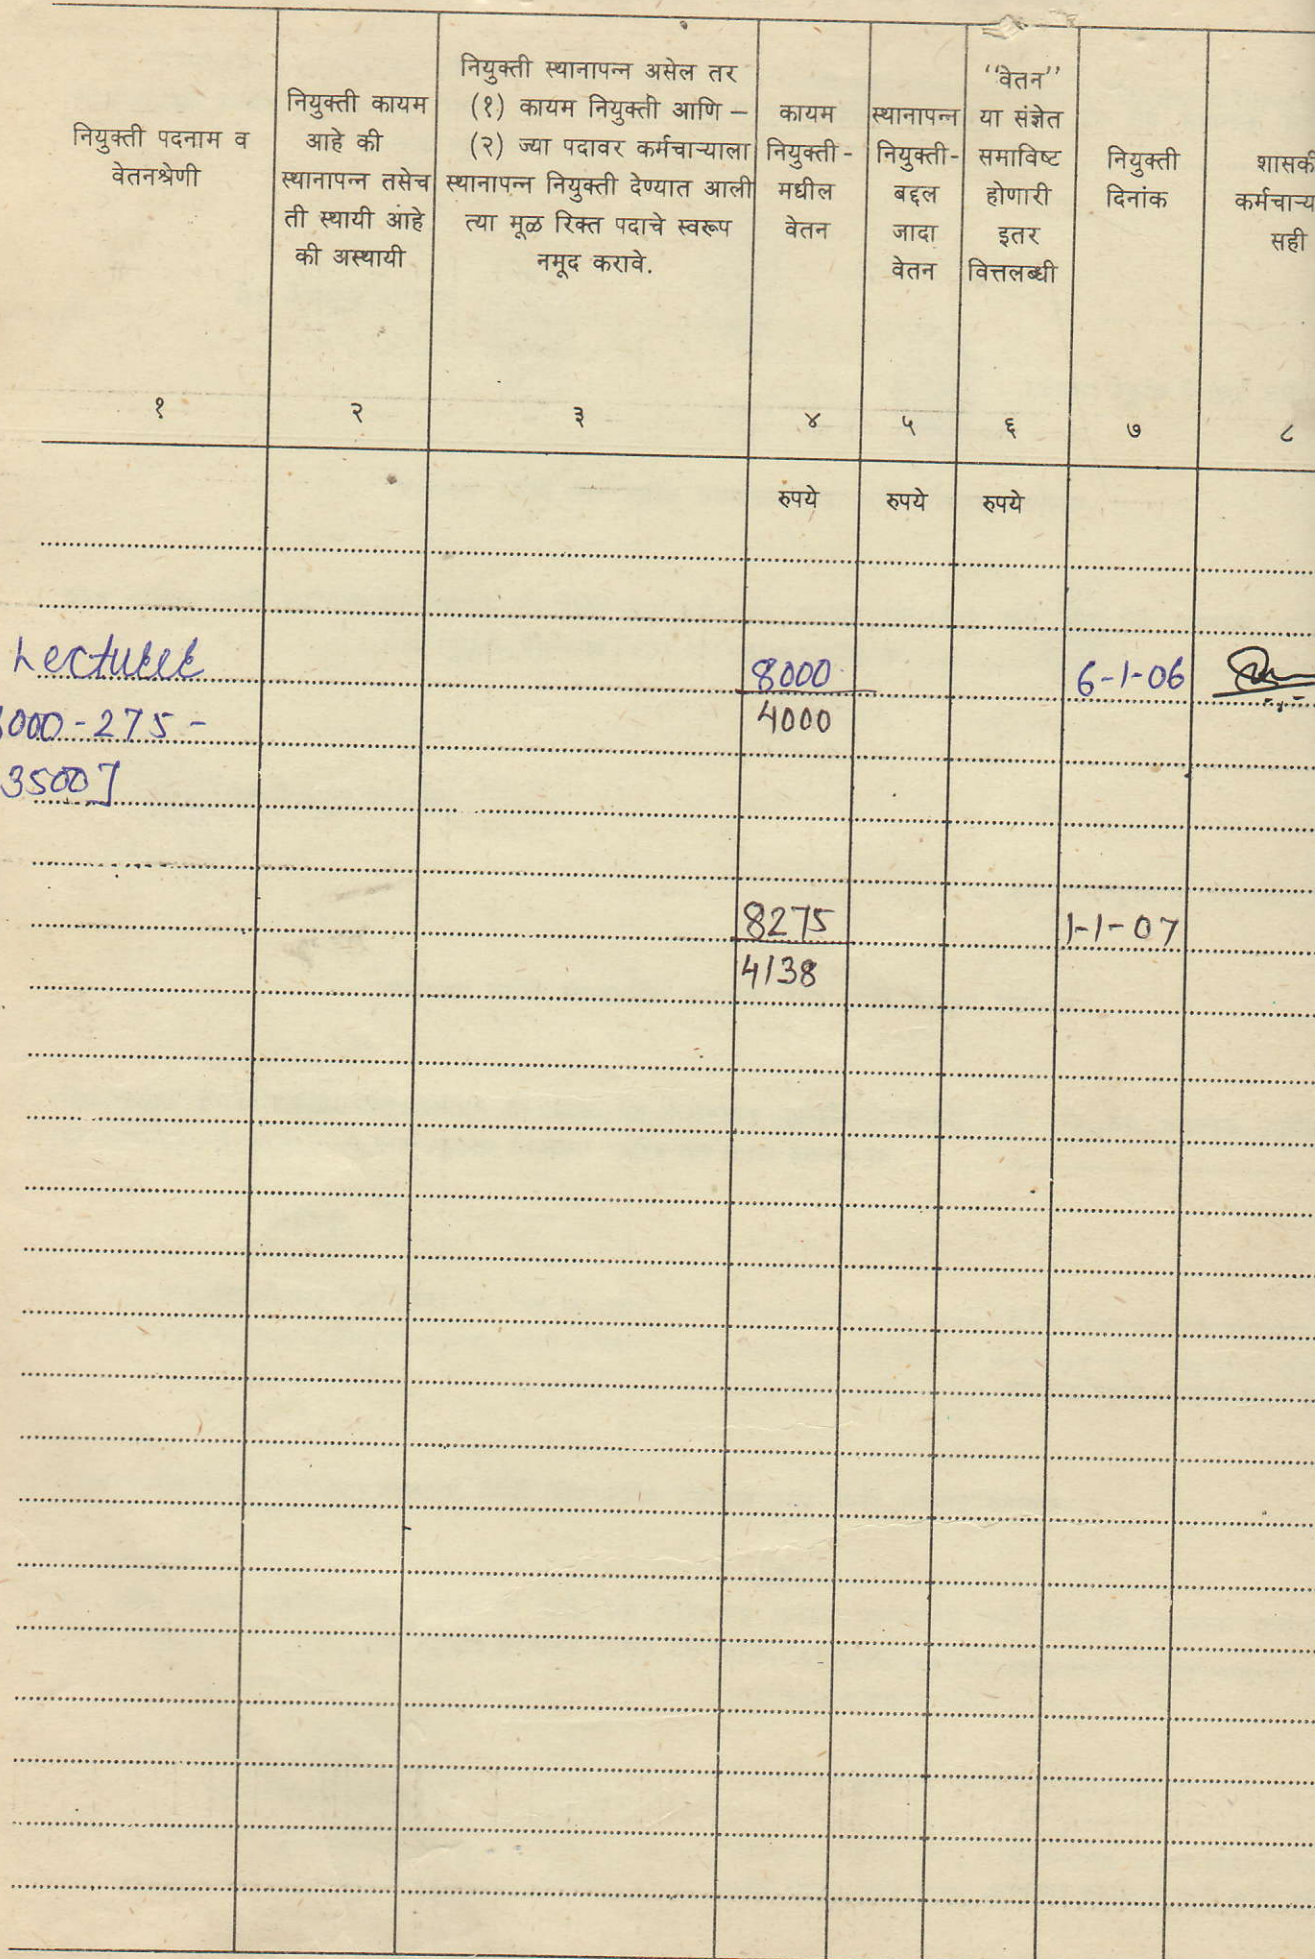 नियुक्ती पदनाम व
वेतनश्रेणी
नियुक्ती कायम
आहे की
स्थानापन्न तसेच
ती स्थायी आहे
की अस्थायी
नियुक्ती स्थानापन्न असेल तर
(१) कायम नियुक्ती आणि –
(२) ज्या पदावर कर्मचाऱ्याला
स्थानापन्न नियुक्ती देण्यात आली
त्या मूळ रिक्त पदाचे स्वरूप
नमूद करावे.
कायम
नियुक्ती-
मधील
वेतन
स्थानापन्न
नियुक्ती-
बद्दल
जादा
वेतन
''वेतन''
या संज्ञेत
समाविष्ट
होणारी
इतर
वित्तलब्धी
नियुक्ती
दिनांक
शासकी
कर्मचाऱ्य
सही
१ २ ३ ४ ५ ६ ७ ८
रुपये रुपये रुपये
Lecturer 8000 6-1-06
000-275- 4000
3500]
8275 1-1-07
4138